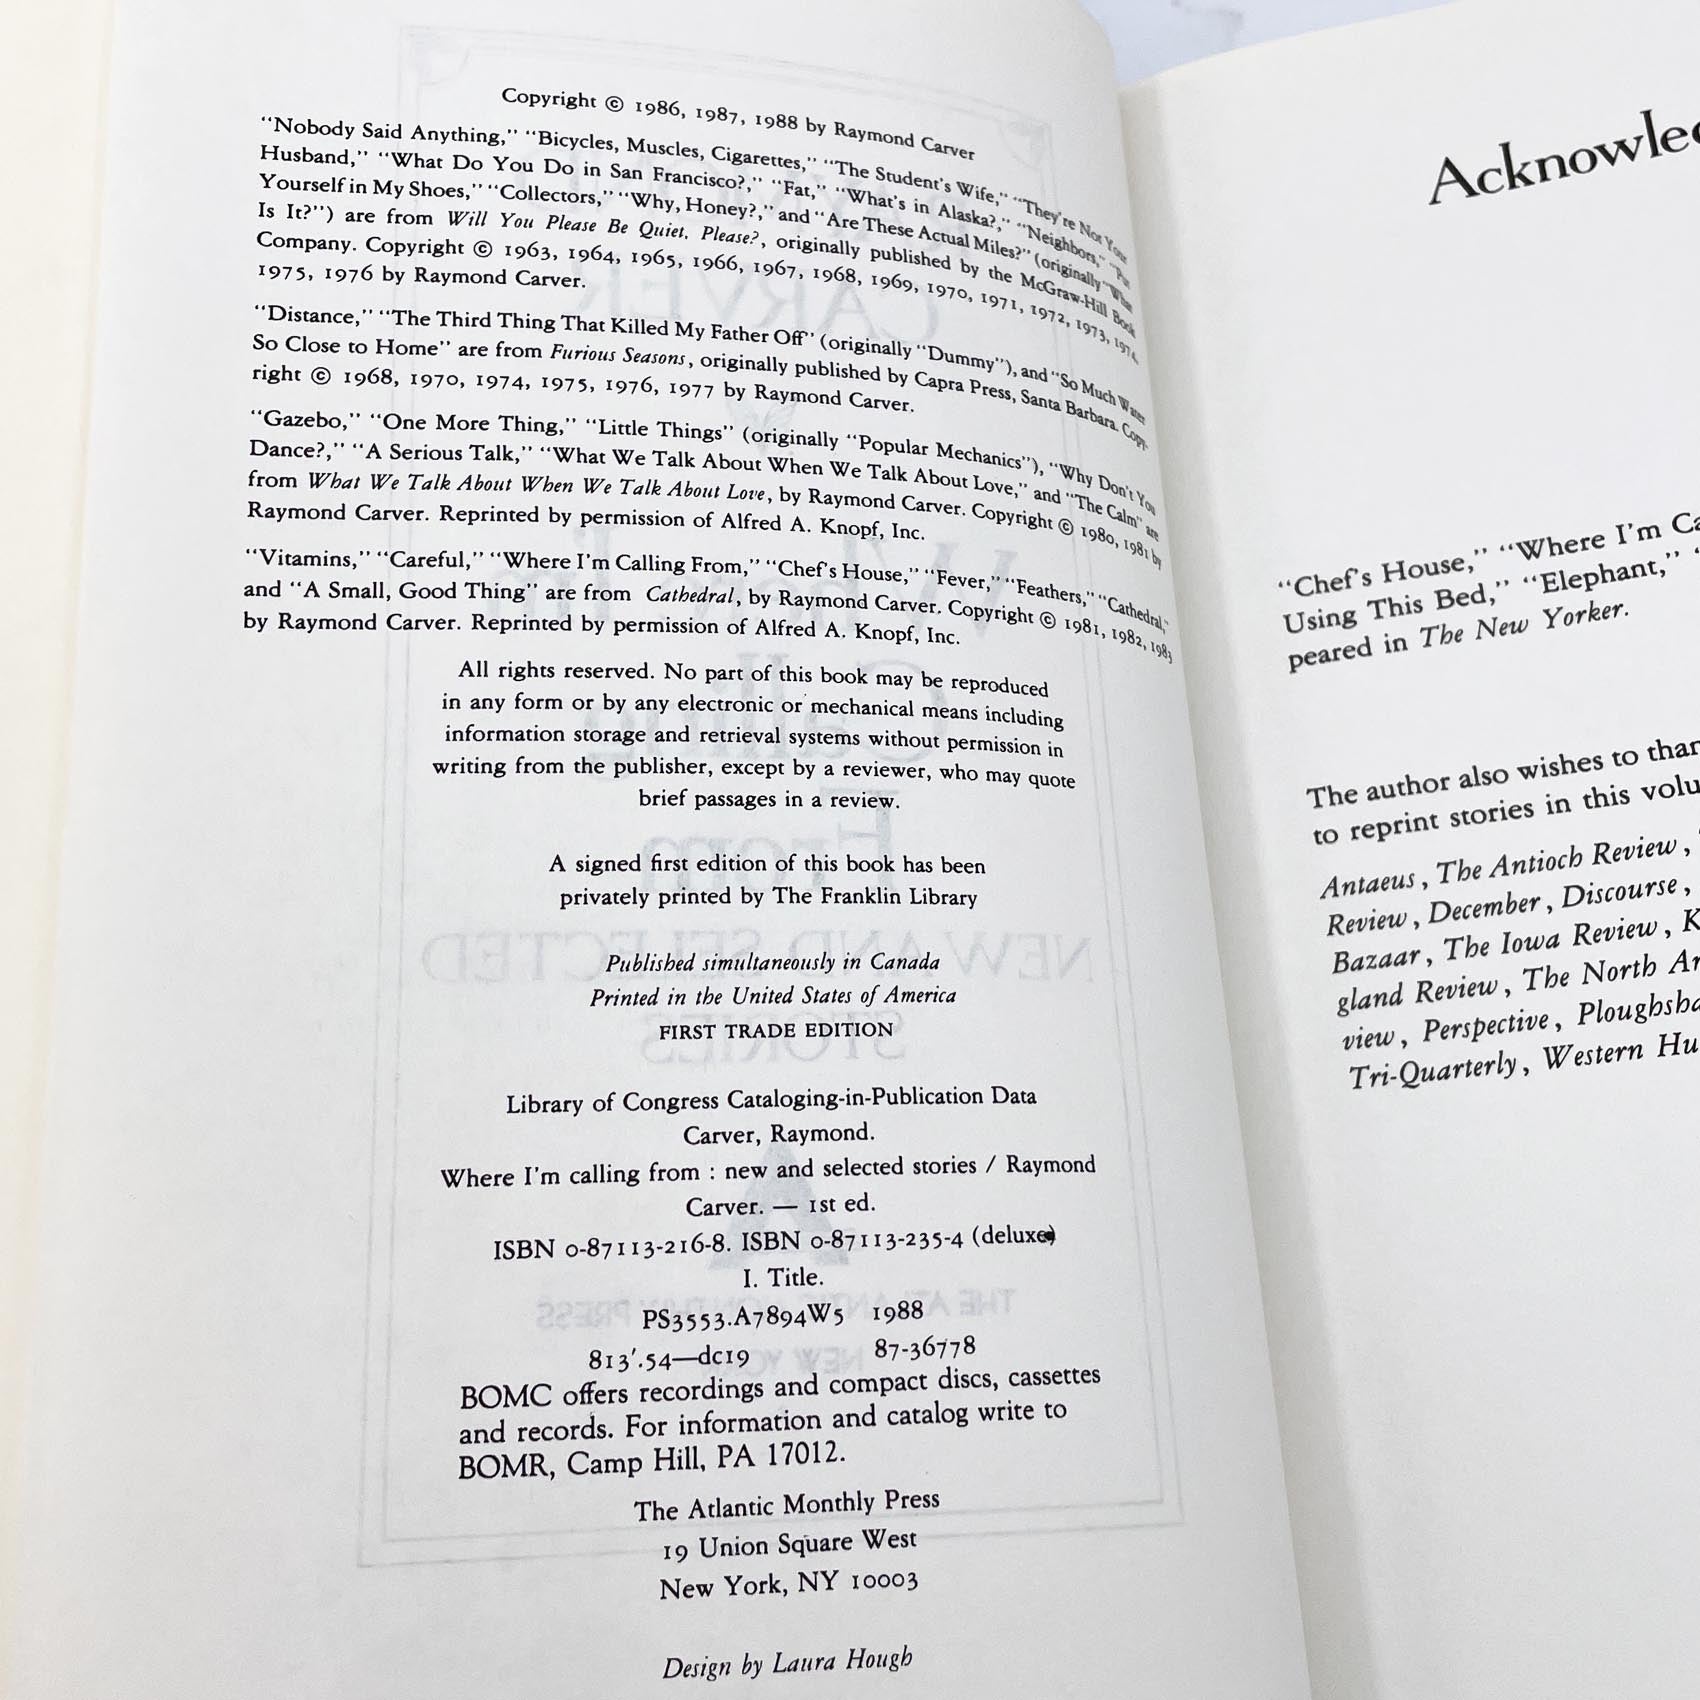 Copyright © 1986, 1987, 1988 by Raymond Carver
"Nobody Said Anything," "Bicycles, Muscles, Cigarettes," "The Student's Wife," "They're Not Your
Husband," "What Do You Do in San Francisco?," "Fat," "What's in Alaska?," "Neighbors," "Put
Yourself in My Shoes," "Collectors," "Why, Honey?," and "Are These Actual Miles?" (originally "What
Is It?") are from Will You Please Be Quiet, Please?, originally published by the McGraw-Hill Book
Company. Copyright © 1963, 1964, 1965, 1966, 1967, 1968, 1969, 1970, 1971, 1972, 1973, 1974,
1975, 1976 by Raymond Carver.
"Distance," "The Third Thing That Killed My Father Off" (originally "Dummy"), and "So Much Water
So Close to Home" are from Furious Seasons, originally published by Capra Press, Santa Barbara. Copy-
right © 1968, 1970, 1974, 1975, 1976, 1977 by Raymond Carver.
"Gazebo," "One More Thing," "Little Things" (originally "Popular Mechanics"), "Why Don't You
Dance?," "A Serious Talk," "What We Talk About When We Talk About Love," and "The Calm" are
from What We Talk About When We Talk About Love, by Raymond Carver. Copyright © 1980, 1981 by
Raymond Carver. Reprinted by permission of Alfred A. Knopf, Inc.
"Vitamins," "Careful," "Where I'm Calling From," "Chef's House," "Fever," "Feathers," "Cathedral,"
and "A Small, Good Thing" are from Cathedral, by Raymond Carver. Copyright © 1981, 1982, 1983
by Raymond Carver. Reprinted by permission of Alfred A. Knopf, Inc.
All rights reserved. No part of this book may be reproduced
in any form or by any electronic or mechanical means including
information storage and retrieval systems without permission in
writing from the publisher, except by a reviewer, who may quote
brief passages in a review.
A signed first edition of this book has been
privately printed by The Franklin Library
Published simultaneously in Canada
Printed in the United States of America
FIRST TRADE EDITION
Library of Congress Cataloging-in-Publication Data
Carver, Raymond.
Where I'm calling from : new and selected stories / Raymond
Carver. — 1st ed.
ISBN 0-87113-216-8. ISBN 0-87113-235-4 (deluxe)
I. Title.
PS3553.A7894W5 1988
813'.54—dc19 87-36778
BOMC offers recordings and compact discs, cassettes
and records. For information and catalog write to
BOMR, Camp Hill, PA 17012.
The Atlantic Monthly Press
19 Union Square West
New York, NY 10003
Design by Laura Hough
Acknowled
"Chef's House," "Where I'm Ca
Using This Bed," "Elephant," "
peared in The New Yorker.
The author also wishes to than
to reprint stories in this volu
Antaeus, The Antioch Review,
Review, December, Discourse,
Bazaar, The Iowa Review, K
gland Review, The North Am
view, Perspective, Ploughsha
Tri-Quarterly, Western Hu